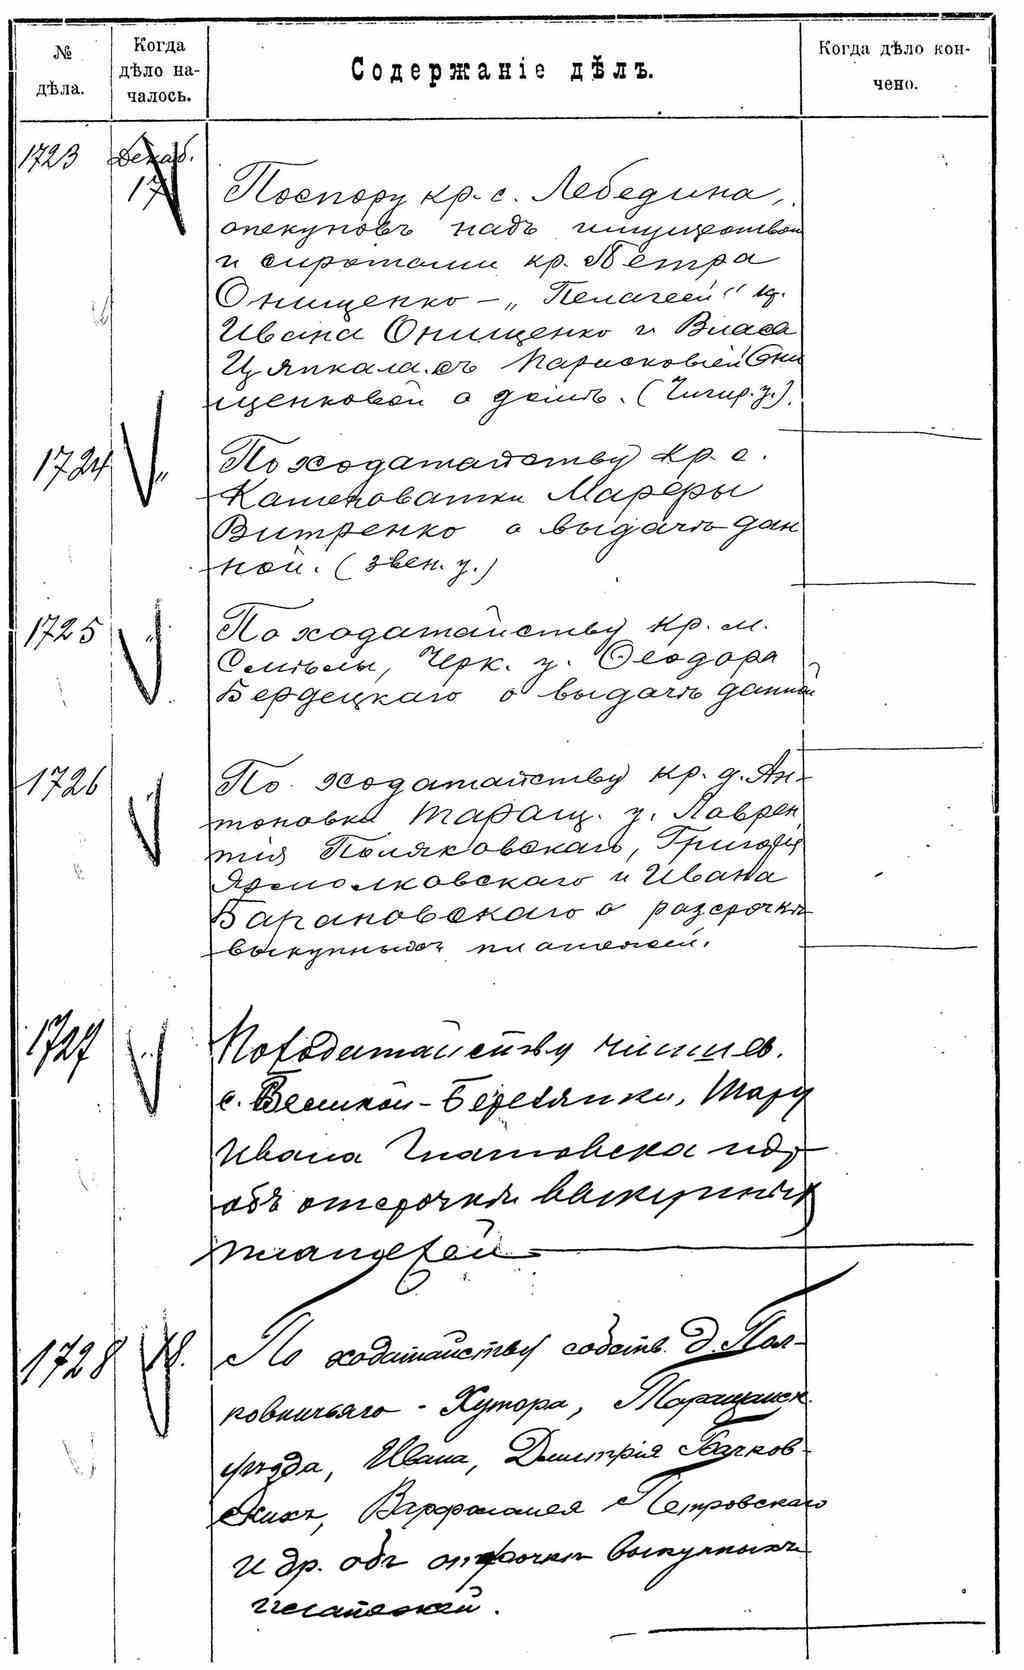 № дѣла.
Когда дѣло на-
чалось.
Содержаніе дѣлъ.
Когда дѣло кон-
чено.
1723 Декаб. 17
По спору кр. с. Лебедина,
опекуновъ надъ имуществом
и сиротами кр. Петра
Онищенко – „Пелагеей" кр.
Ивана Онищенко и Власа
Цяпкала съ Парасковіей Они
щенковой о домѣ. (Чигир. у.).
1724 "
По ходатайству кр. с.
Каменоватки Марфы
Витренко о выдачѣ дан
ной. (Звен. у.)
1725 "
По ходатайству кр. м.
Смѣлы, Черк. у. Ѳеодора
Бердецкаго о выдачѣ данной
1726 "
По ходатайству кр. д. Ан-
тоновки Таращ. у. Лаврен
тія Поляковскаго, Григорія
Ярмолковскаго и Ивана
Барановскаго о разсрочкѣ
выкупныхъ платежей.
1727 "
По ходатайству чиншев.
с. Великой-Березянки, Тару
Ивана и др.
объ отсрочкѣ выкупных
платежей
1728 18.
По ходатайству собств. д. Пол-
ковничьяго - Хутора, Таращанск.
уѣзда, Ивана, Дмитрія Бачков-
скихъ, Варфоломея Петровскаго
и др. объ отсрочкѣ выкупныхъ
платежей.